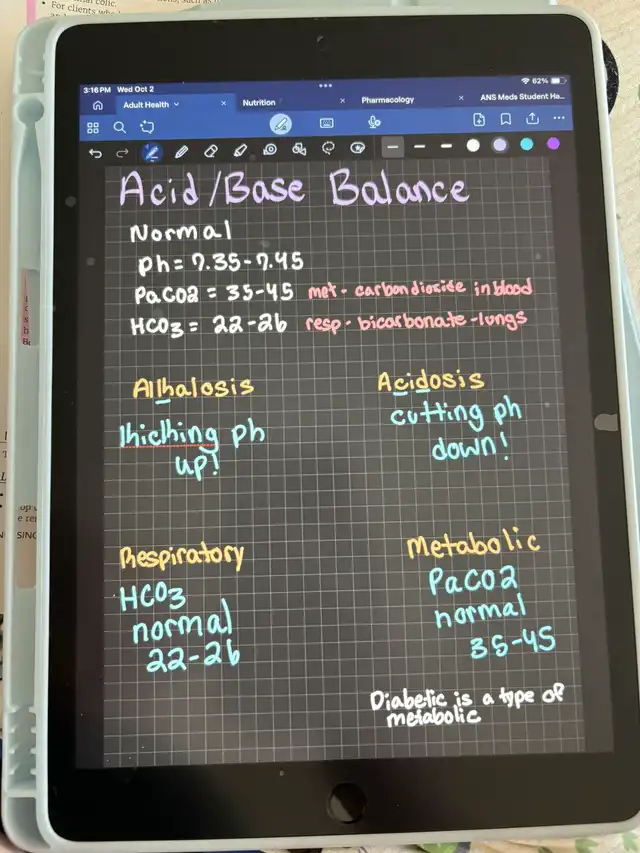 For clients who
3:16 PM Wed Oct 2
62%
Adult Health
Nutrition
Pharmacology
ANS Meds Student Ha...
Acid/Base Balance
Normal
ph = 7.35-7.45
PaCO2 = 35-45 met - carbondioxide in blood
HCO3 = 22-26 resp - bicarbonate - lungs
Alkalosis
Acidosis
kicking ph
up!
cutting ph
down!
Respiratory
HCO3
normal
22-26
Metabolic
PaCO2
normal
35-45
Diabetic is a type of
metabolic